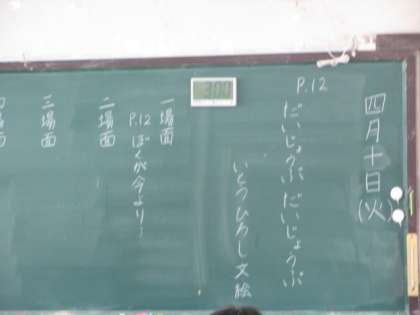 四月十日(火)
P.12
だいじょうぶ だいじょうぶ
いとうひろし 文 絵
3:00
一場面
P.12 ぼくが今より〜
二場面
三場面